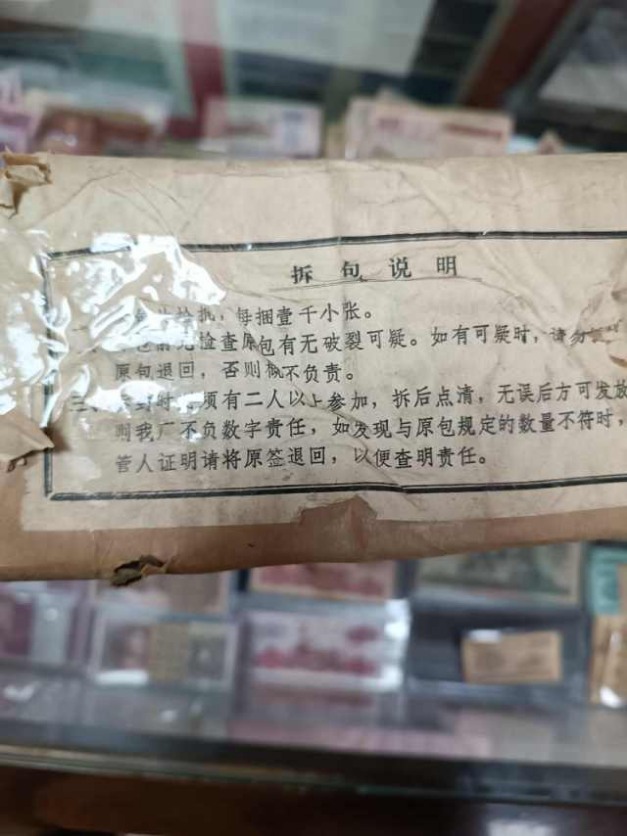 拆包说明
每捆壹千小张。
检查原包有无破裂可疑。如有可疑时，请勿
原包退回，否则概不负责。
三、 封时 须有二人以上参加，拆后点清，无误后方可发放
则我厂不负数字责任，如发现与原包规定的数量不符时，
管人证明请将原签退回，以便查明责任。